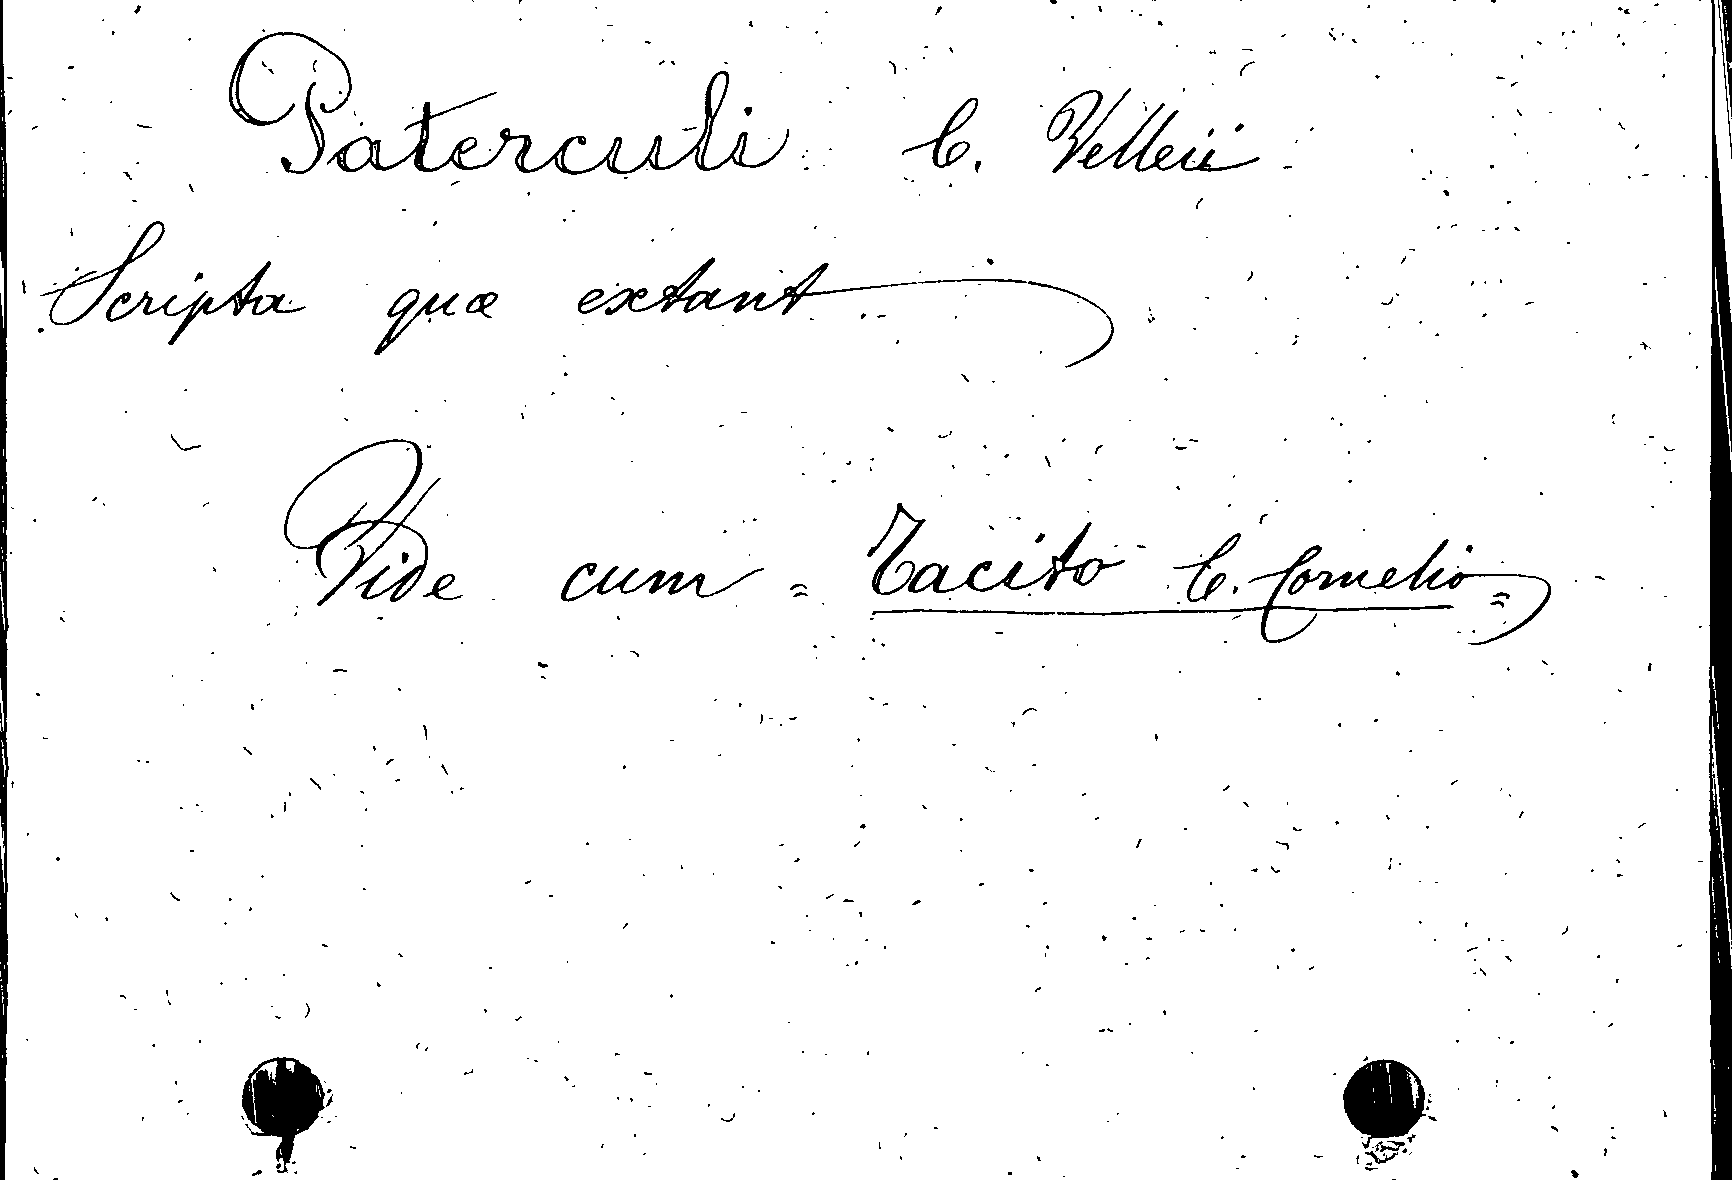 Paterculi C. Velleii
Scripta quæ extant
Vide cum = Tacito C. Cornelio =